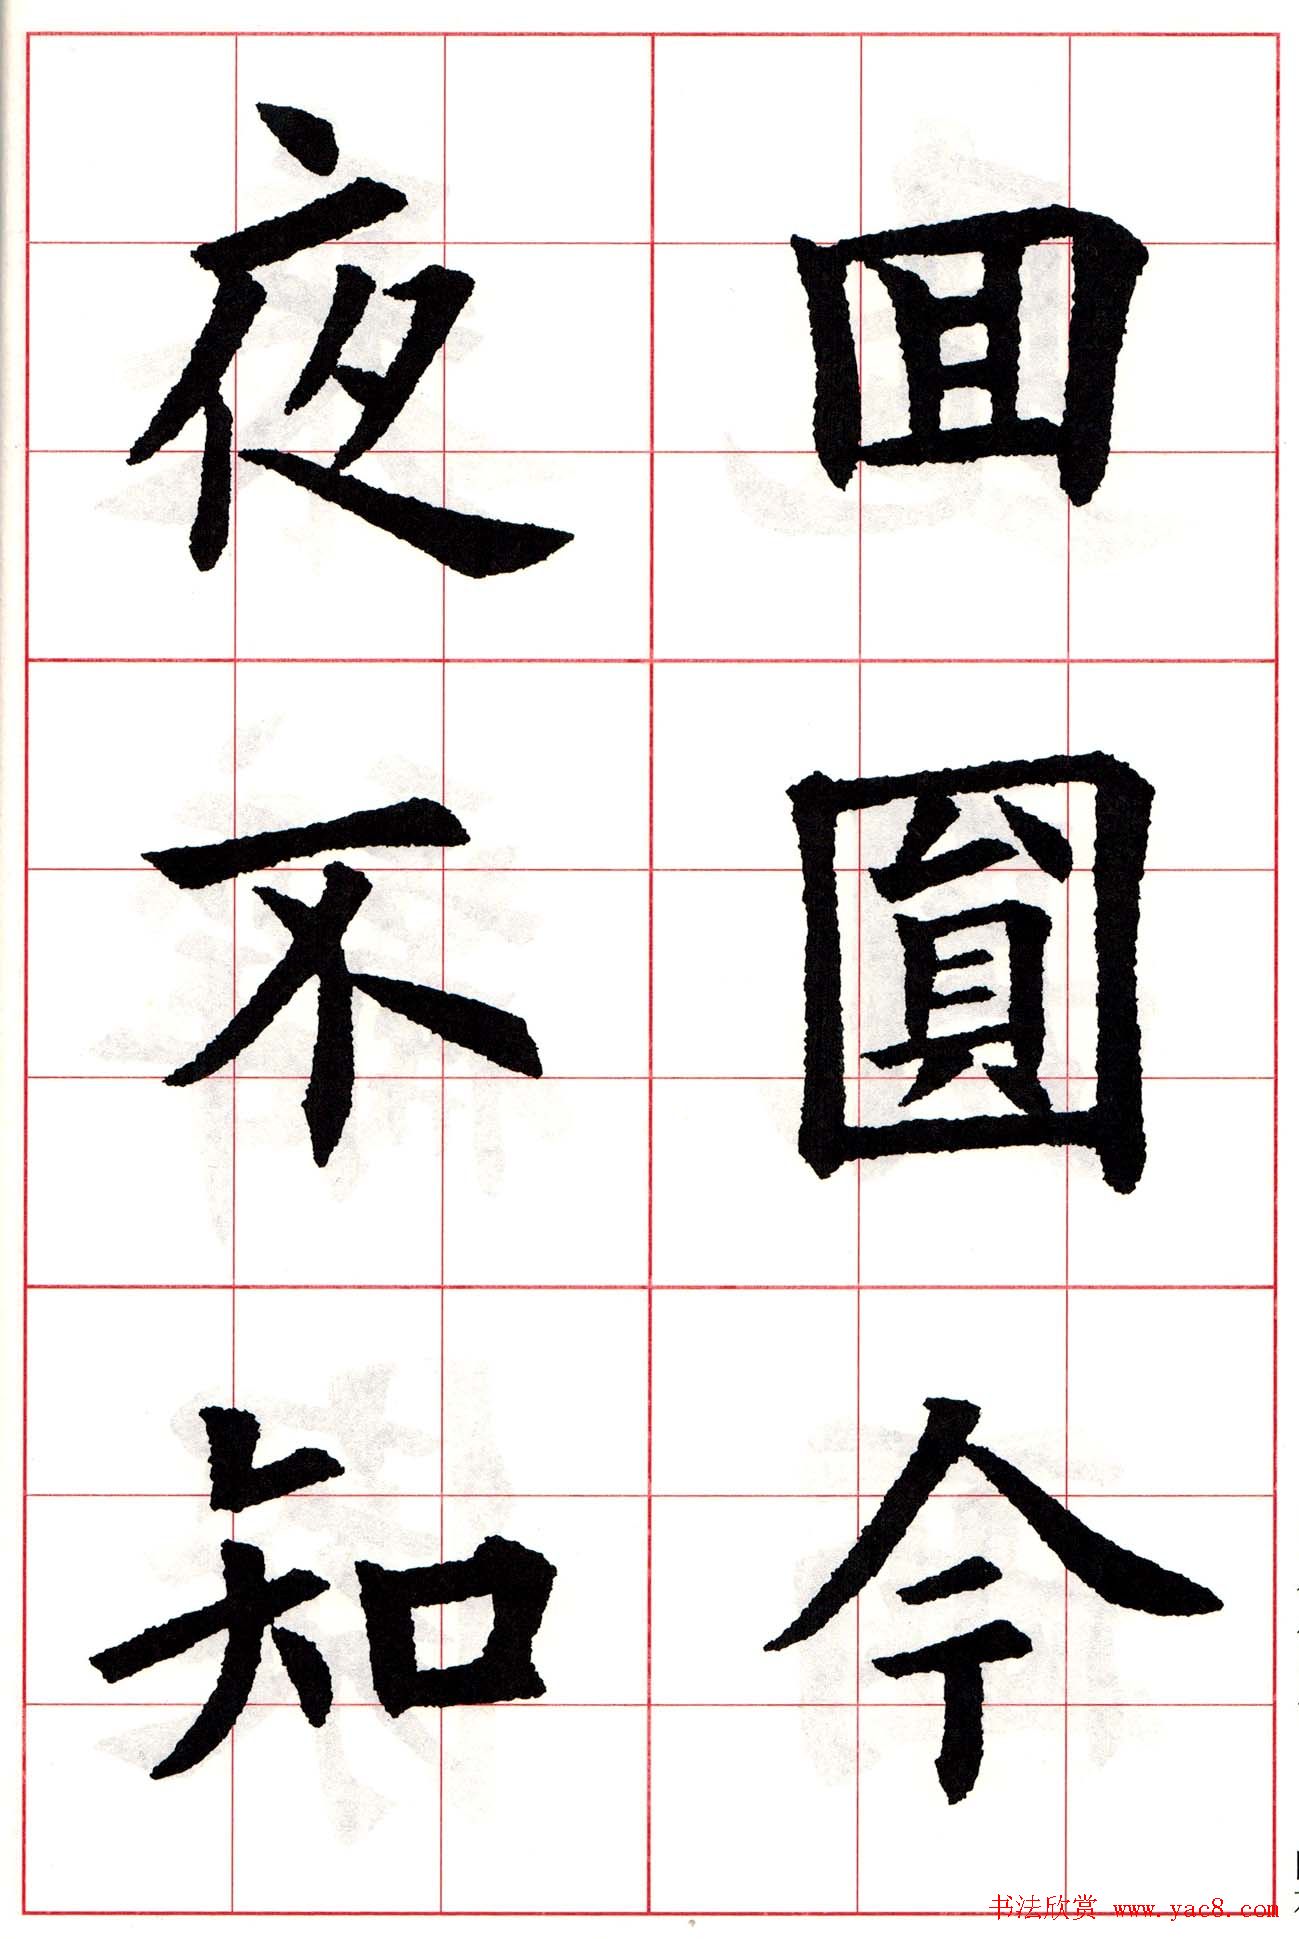 囬圓今
夜不知
书法欣赏 www.yac8.com